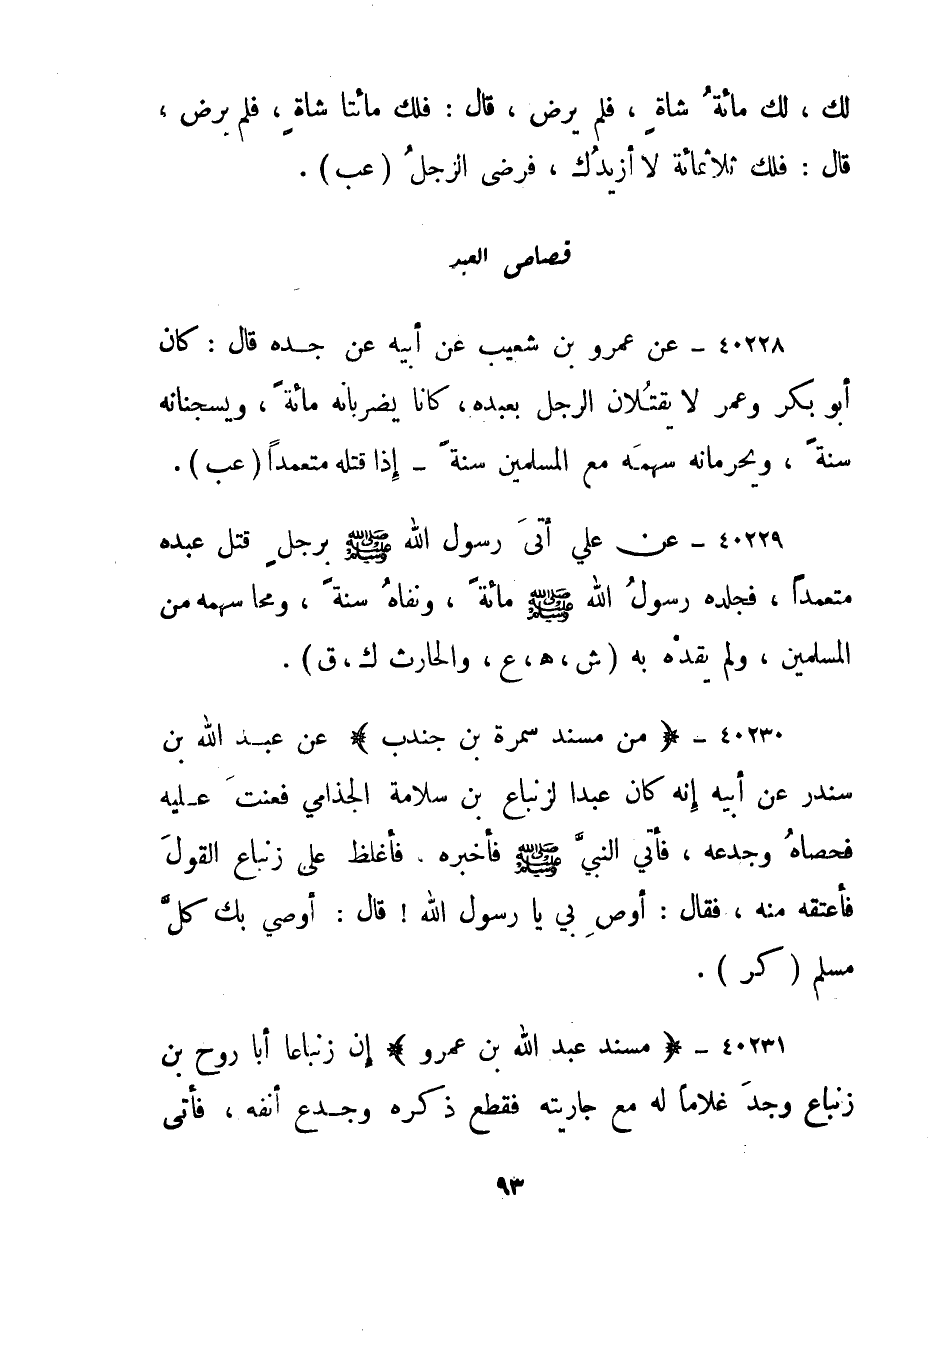 لك ، لك مائةُ شاةٍ ، فلم يرض ، قال : فلك مائتا شاةٍ ، فلم يرض ،
قال : فلك ثلاثمائة لا أزيدُك ، فرضى الرجلُ ( عب ) .
قصاص العبد
٤٠٢٢٨ ـ عن عمرو بن شعيب عن أبيه عن جده قال : كان
أبو بكر وعمر لا يقتُلان الرجل بعبده ، كانا يضربانه مائةً ، ويسجنانه
سنةً ، ويحرمانه سهمَه مع المسلمين سنةً ـ إذا قتله متعمداً ( عب ) .
٤٠٢٢٩ ـ عن علي أتىَ رسول الله ﷺ برجلٍ قتل عبده
متعمداً ، فجلده رسولُ الله ﷺ مائةً ، ونفاهُ سنةً ، ومحا سهمه من
المسلمين ، ولم يقدْه به ( ش ، ه ، ع ، والحارث ك ، ق ) .
٤٠٢٣٠ ـ ﴿ من مسند سمرة بن جندب ﴾ عن عبد الله بن
سندر عن أبيه إنه كان عبدا لزنباع بن سلامة الجذامي فعنتَ عليه
فحصاهُ وجدعه ، فأتي النبيَّ ﷺ فأخبره . فأغلظ على زنباع القولَ
فأعتقه منه ، فقال : أوصِ بي يا رسول الله ! قال : أوصي بك كلَّ
مسلم ( كر ) .
٤٠٢٣١ ـ ﴿ مسند عبد الله بن عمرو ﴾ إن زنباعا أبا روح بن
زنباع وجدَ غلاماً له مع جاريته فقطع ذكره وجدع أنفه ، فأتى
٩٣